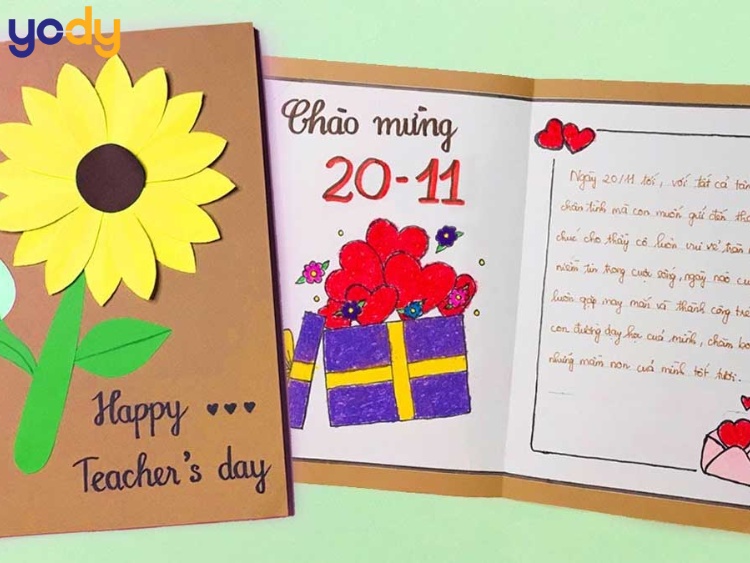 yody
Happy
Teacher's day
Chào mừng
20-11
Ngày 20/11 tới, với tất cả
chân tình mà con muốn gửi đến
chúc cho thầy cô luôn vui vẻ tràn
niềm tin trong cuộc sống, ngày nào
luôn gặp may mắn và thành công
con đường dạy học của mình, chăm
những mầm non của mình tốt tươi.